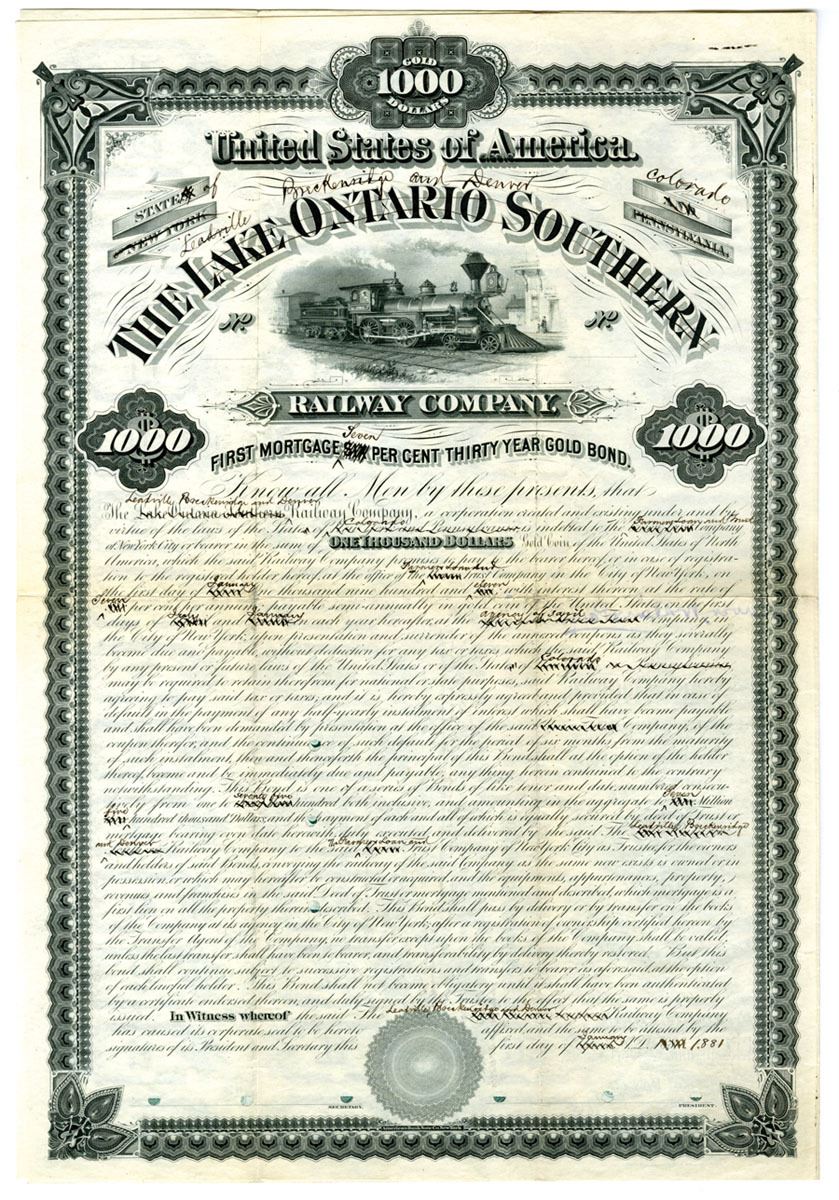 GOLD
1000
DOLLARS
United States of America.
STATE of
NEW YORK
Leadville Breckenridge and Denver
Colorado
AND
PENNSYLVANIA.
THE LAKE ONTARIO SOUTHERN
No No
RAILWAY COMPANY.
$1000 $1000
Seven
FIRST MORTGAGE PER CENT THIRTY YEAR GOLD BOND.
Know all Men by these presents that
Leadville Breckenridge and Denver
The Lake Ontario Southern Railway Company, a corporation created and existing under and by
virtue of the laws of the State of Colorado Pennsylvania is indebted to the Farmers Loan and Trust Company
of New York City or bearer in the sum of ONE THOUSAND DOLLARS Gold Coin of the United States of North
America, which the said Railway Company promises to pay to the bearer hereof, or in case of registra-
tion to the registered holder hereof, at the office of The Farmers Loan and Trust Company in the City of New York, on
the first day of January one thousand nine hundred and eleven with interest thereon at the rate of
Seven per cent per annum payable semi-annually in gold coin of the United States on the first
days of July and January in each year hereafter, at the agency of said Company in
the City of New York, upon presentation and surrender of the annexed coupons as they severally
become due and payable, without deduction for any tax or taxes which the said Railway Company
by any present or future laws of the United States or of the State of Colorado or Pennsylvania
may be required to retain therefrom for national or state purposes, said Railway Company hereby
agreeing to pay said tax or taxes; and it is hereby expressly agreed and provided that in case of
default in the payment of any half-yearly instalment of interest which shall have become payable
and shall have been demanded by presentation at the office of the said Company, of the
coupon therefor, and the continuance of such default for the period of six months from the maturity
of such instalment, then and thenceforth the principal of this Bond shall at the option of the holder
hereof, become and be immediately due and payable, anything herein contained to the contrary
notwithstanding. This Bond is one of a series of Bonds of like tenor and date numbered consecu-
tively from one to Seventy five hundred both inclusive, and amounting in the aggregate to Seven Million
five hundred thousand Dollars, and the payment of each and all of which is equally secured by a Trust or
mortgage bearing even date herewith, duly executed and delivered by the said The Leadville Breckenridge
and Denver Railway Company to the said The Farmers Loan and Trust Company of New York City as Trustee for the owners
and holders of said Bonds, conveying the railway of the said Company as the same now exists is owned or in
possession or which may hereafter be constructed or acquired, and the equipments, appurtenances, property,
revenues, and franchises in the said Deed of Trust or mortgage mentioned and described, which mortgage is a
first lien on all the property therein described. This Bond shall pass by delivery or by transfer on the books
of the Company at its agency in the City of New York; after a registration of ownership certified hereon by
the Transfer Agent of the Company, no transfer except upon the books of the Company shall be valid,
unless the last transfer shall have been to bearer, and transferability by delivery thereby restored. But this
bond shall continue subject to successive registrations and transfers to bearer as aforesaid at the option
of each lawful holder. This Bond shall not become obligatory until it shall have been authenticated
by a certificate endorsed hereon, and duly signed by the Trustee to the effect that the same is properly
issued. In Witness whereof the said The Leadville Breckenridge and Denver Railway Company
has caused its corporate seal to be hereto affixed, and the same to be attested by the
signatures of its President and Secretary this first day of January A.D. 1881
SECRETARY. PRESIDENT.